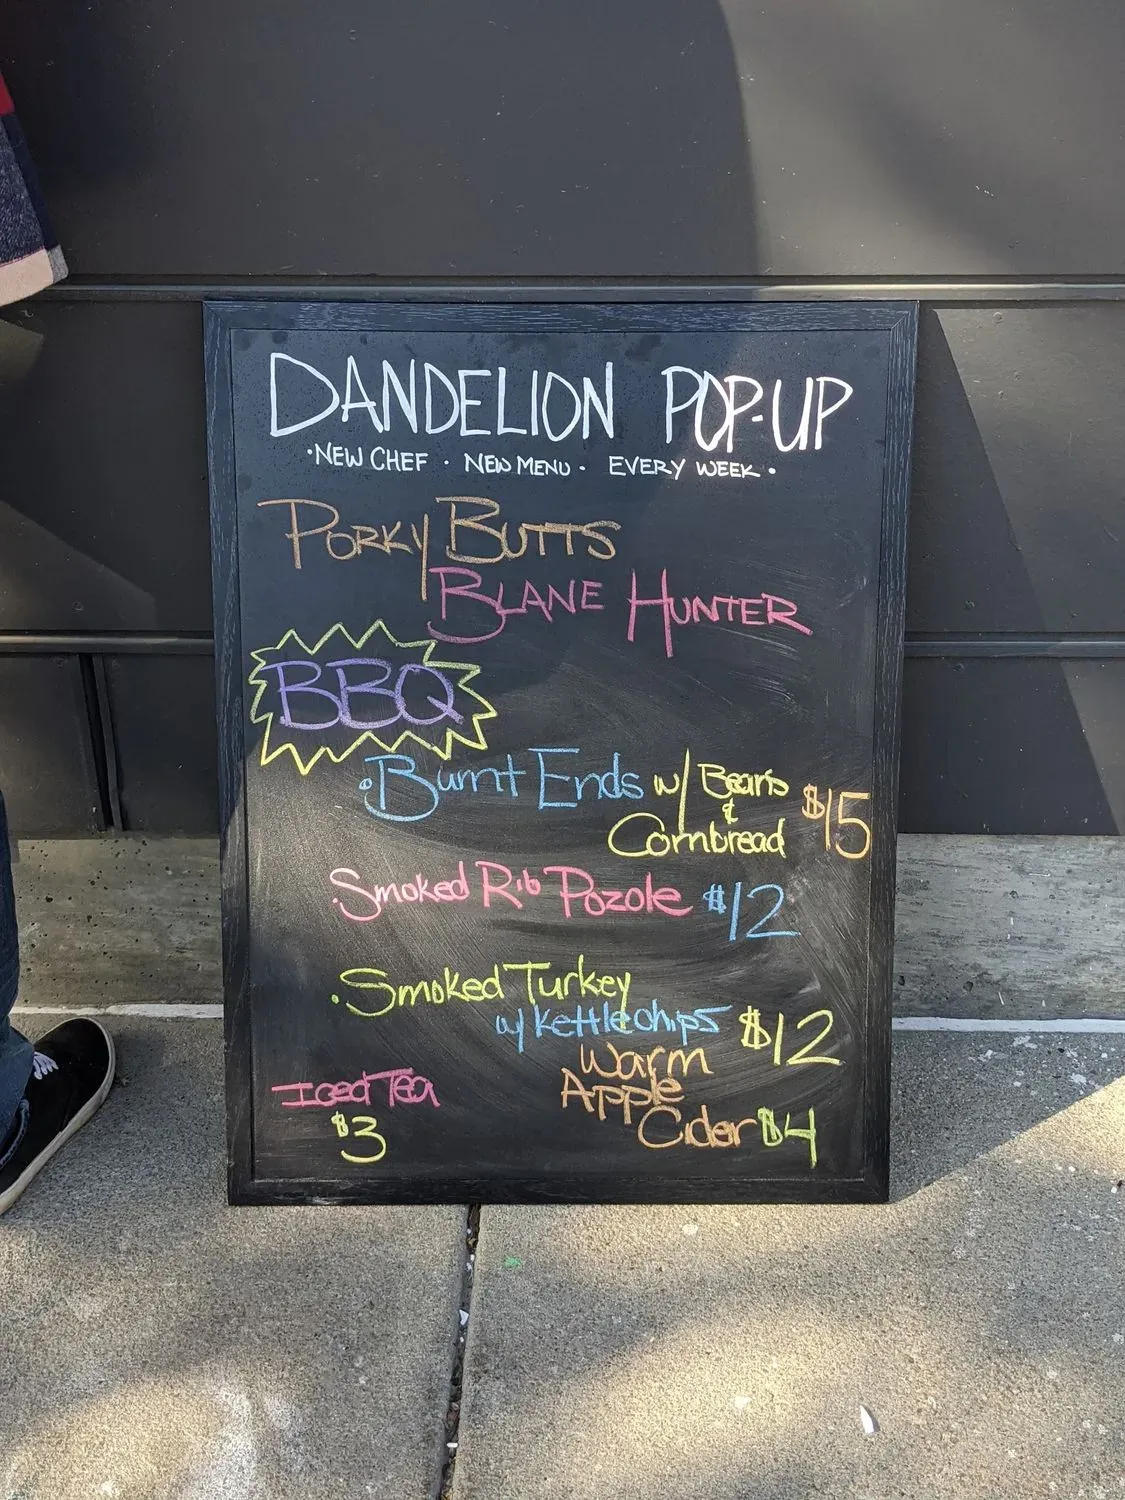 DANDELION POP-UP
• NEW CHEF • NEW MENU • EVERY WEEK •
PORKY BUTTS
BLANE HUNTER
BBQ
• Burnt Ends w/ Beans
&
Cornbread $15
• Smoked Rib Pozole $12
• Smoked Turkey
w/ Kettle chips $12
Iced Tea
$3
Warm
Apple
Cider $4